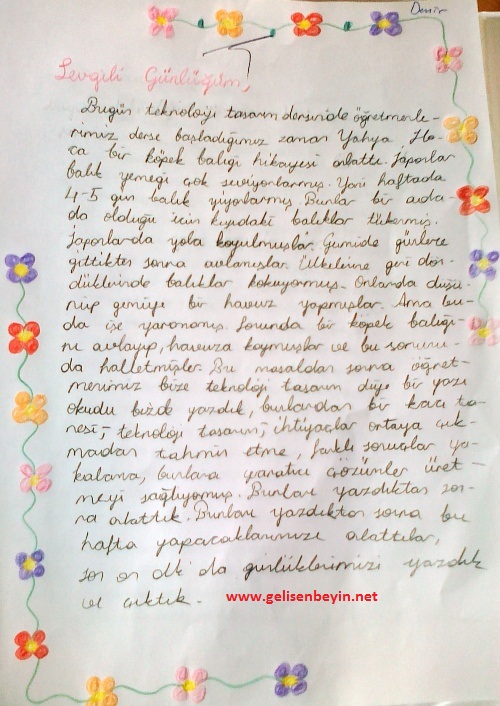 Demir
Sevgili Günlüğüm,
Bugün teknoloji tasarım dersinde öğretmenle-
rimiz derse başladığımız zaman Yahya Ho-
ca bir köpek balığı hikayesi anlattı. Japonlar
balık yemeği çok seviyorlarmış. Yani haftada
4-5 gün balık yiyorlarmış. Bunlar bir ada-
da olduğu için kıyıdaki balıklar tükenmiş.
Japonlarda yola koyulmuşlar. Gemide günlerce
gittikten sonra avlamışlar. Ülkelerine geri dön-
düklerinde balıklar kokuyormuş. Onlarda düşü-
nüp gemiye bir havuz yapmışlar. Ama bu-
da işe yaramamış. Sonunda bir köpek balığı-
nı avlayıp, havuza koymuşlar ve bu sorunu-
da halletmişler. Bu masaldan sonra öğret-
menimiz bize teknoloji tasarım diye bir yazı
okudu bizde yazdık, bunlardan bir kaçı ta-
nesi; teknoloji tasarım; ihtiyaçlar ortaya çık-
madan tahmin etme, farklı sonuçlar ya-
kalama, bunlara yaratıcı çözümler üret-
meyi sağlıyormuş. Bunları yazdıktan son-
ra anlattık. Bunları yazdıktan sonra bu
hafta yapacaklarımızı anlattılar,
son on dk da günlüklerimizi yazdık
ve çıktık.
www.gelisenbeyin.net